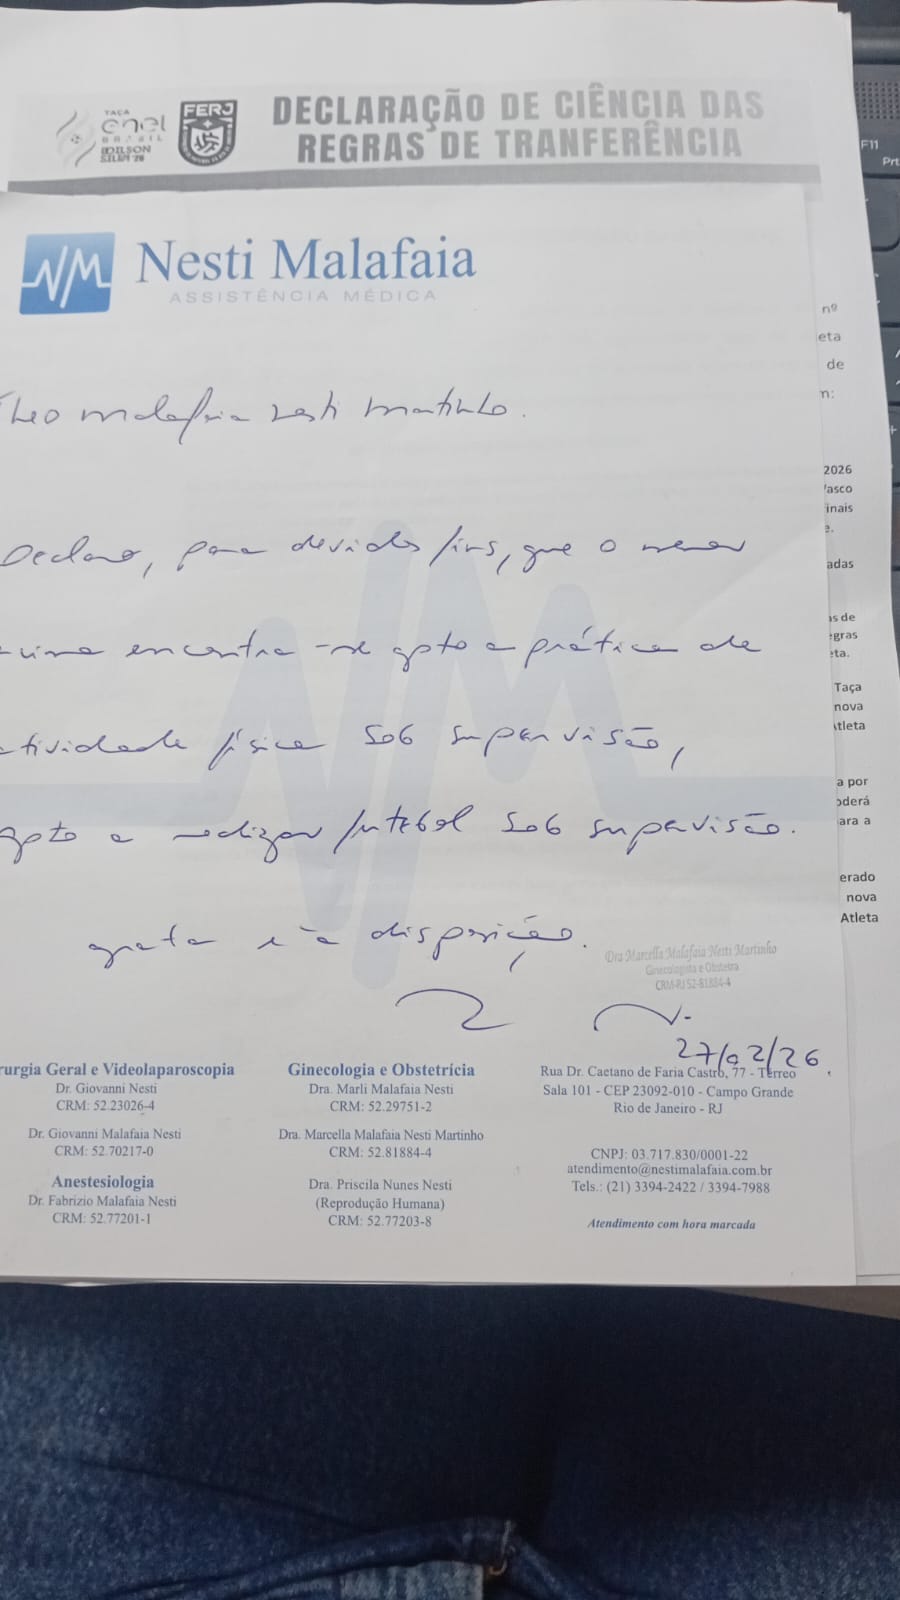 TAÇA
enel
BRASIL
EDILSON
SILVA '26
FERJ
DECLARAÇÃO DE CIÊNCIA DAS
REGRAS DE TRANFERÊNCIA
NM Nesti Malafaia
ASSISTÊNCIA MÉDICA
Theo Malafaia Nesti Martinho.
Declaro, para devidos fins, que o menor
acima encontra-se apto a prática de
atividade física sob supervisão,
apto a realizar futebol sob supervisão.
grata e à disposição.
Dra Marcella Malafaia Nesti Martinho
Ginecologista e Obstetra
CRM-RJ 52-81884-4
27/02/26
rurgia Geral e Videolaparoscopia
Dr. Giovanni Nesti
CRM: 52.23026-4
Dr. Giovanni Malafaia Nesti
CRM: 52.70217-0
Anestesiologia
Dr. Fabrizio Malafaia Nesti
CRM: 52.77201-1
Ginecologia e Obstetrícia
Dra. Marli Malafaia Nesti
CRM: 52.29751-2
Dra. Marcella Malafaia Nesti Martinho
CRM: 52.81884-4
Dra. Priscila Nunes Nesti
(Reprodução Humana)
CRM: 52.77203-8
Rua Dr. Caetano de Faria Castro, 77 - Térreo
Sala 101 - CEP 23092-010 - Campo Grande
Rio de Janeiro - RJ
CNPJ: 03.717.830/0001-22
atendimento@nestimalafaia.com.br
Tels.: (21) 3394-2422 / 3394-7988
Atendimento com hora marcada
nº
eta
de
m:
2026
Vasco
inais
e.
adas
as de
egras
eta.
Taça
nova
Atleta
a por
oderá
ara a
erado
nova
Atleta
F11
Prt